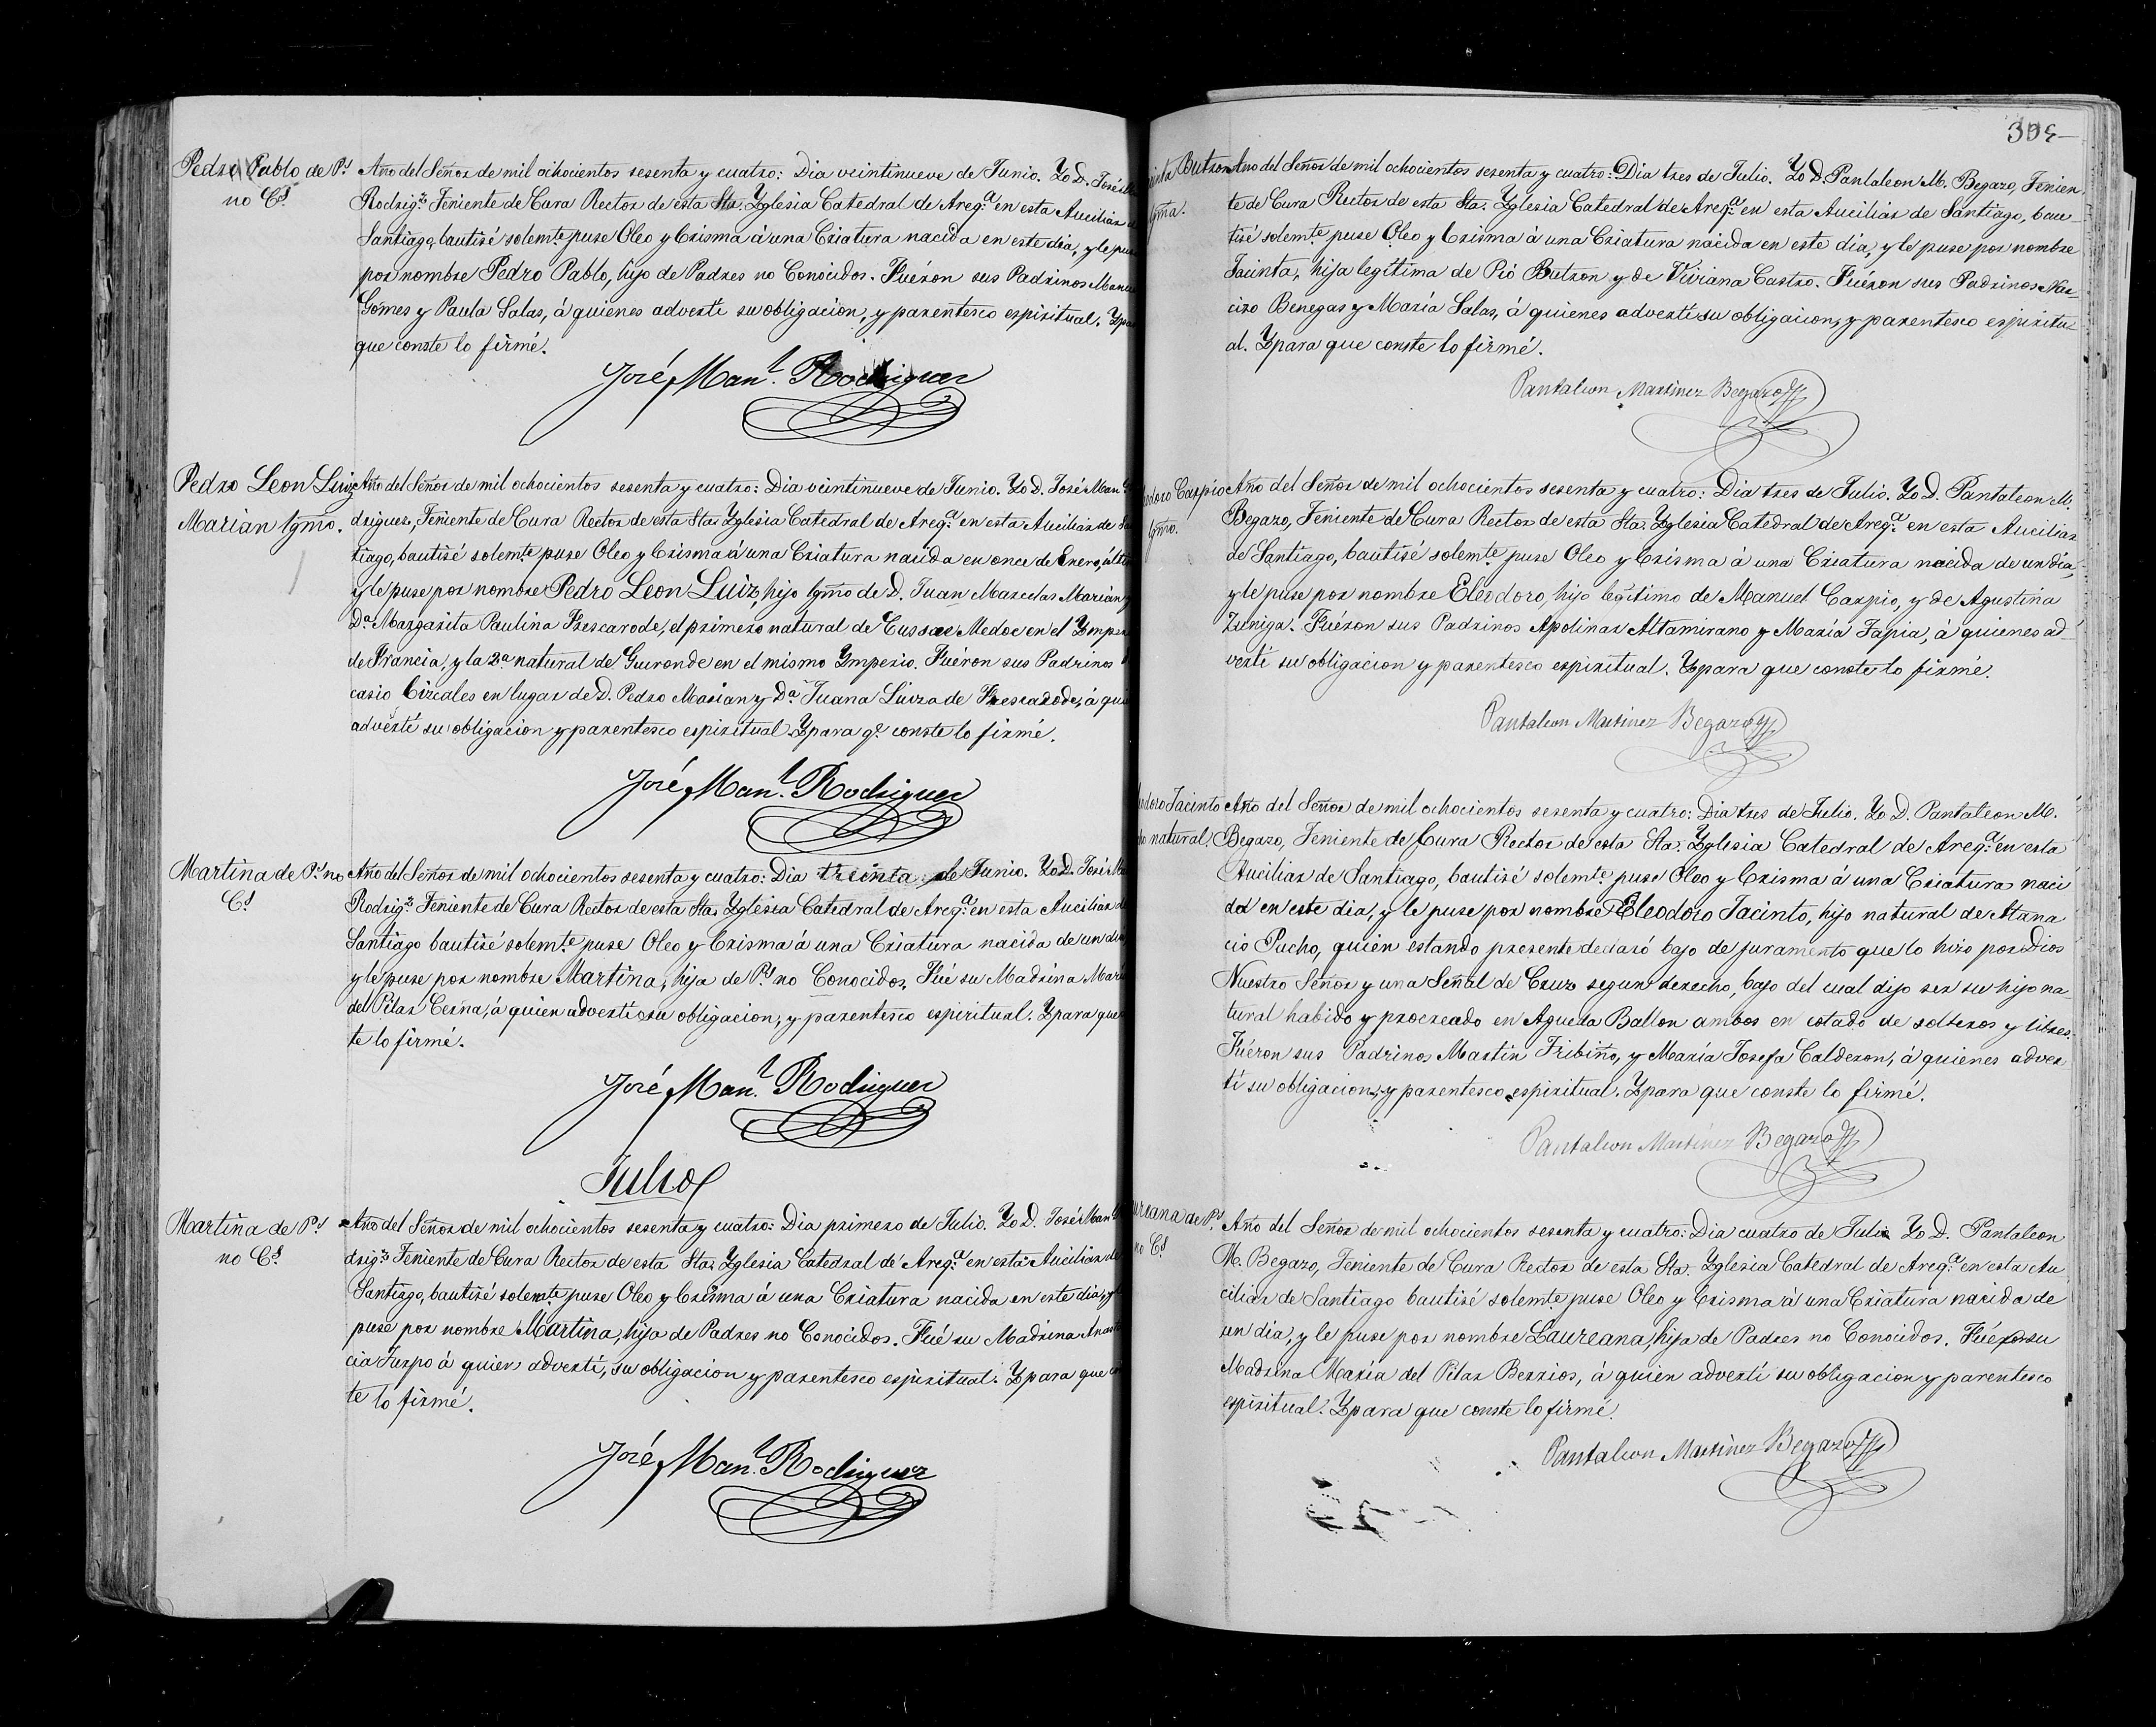 Pedro Pablo de P.s
no C.s
Año del Señor de mil ochocientos sesenta y cuatro: Dia veintinueve de Junio. Yo D. José
Rodrig.z Teniente de Cura Rector de esta Sta. Yglesia Catedral de Areq.a en esta Auciliar
Santiago, bautisé solemte. puse Oleo y Crisma á una Criatura nacida en este dia, y le puse
por nombre Pedro Pablo, hijo de Padres no Conocidos. Fuéron sus Padrinos
Gómes y Paula Salas, á quienes advertí su obligacion, y parentesco espiritual. Y
que conste lo firmé.
José Man.l Rodriguez
Pedro Leon Luiz
Marian lgmo.
Año del Señor de mil ochocientos sesenta y cuatro: Dia veintinueve de Junio. Yo D. José Man.l
driguez, Teniente de Cura Rector de esta Sta. Yglesia Catedral de Areq.a en esta Auciliar de
tiago, bautisé solemte. puse Oleo y Crisma á una Criatura nacida en once de Enero,
y le puse por nombre Pedro Leon Luiz, hijo lgmo de D. Juan Marcelas Marian y
Da. Margarita Paulina Frescarode, el primero natural de Cussac Medoc en el
de Francia, y la 2a. natural de Guironde en el mismo Ymperio. Fuéron sus Padrinos
casio Circales en lugar de D. Pedro Marian y Da. Juana Luiza de Frescarode, á
advertí su obligacion y parentesco espiritual. Y para q.e conste lo firmé.
José Man.l Rodriguez
Martina de P.s no
C.s
Año del Señor de mil ochocientos sesenta y cuatro: Dia treinta de Junio. Yo D. José
Rodrig.z Teniente de Cura Rector de esta Sta. Yglesia Catedral de Areq.a en esta Auciliar de
Santiago bautisé solemte. puse Oleo y Crisma á una Criatura nacida de un dia
y le puse por nombre Martina, hija de P.s no Conocidos. Fué su Madrina
del Pilar Cerna, á quien advertí su obligacion, y parentesco espiritual. Y para que
te lo firmé.
José Man.l Rodriguez
Julio
Martina de P.s
no C.s
Año del Señor de mil ochocientos sesenta y cuatro: Dia primero de Julio. Yo D. José Man.l
drig.z Teniente de Cura Rector de esta Sta. Yglesia Catedral de Areq.a en esta Auciliar de
Santiago, bautisé solemte. puse Oleo y Crisma á una Criatura nacida en este dia, y
puse por nombre Martina, hija de Padres no Conocidos. Fué su Madrina
cia Turpo á quien advertí, su obligacion y parentesco espiritual. Y para que
te lo firmé.
José Man.l Rodriguez
Butron
lgma.
Año del Señor de mil ochocientos sesenta y cuatro: Dia tres de Julio. Yo D. Pantaleon M. Begazo, Tenien
te de Cura Rector de esta Sta. Yglesia Catedral de Areq.a en esta Auciliar de Santiago, bau
tisé solemte. puse Oleo y Crisma á una Criatura nacida en este dia, y le puse por nombre
Jacinta, hija legítima de Pió Butron y de Viviana Castro. Fuéron sus Padrinos Nar
ciso Benegas y María Salas, á quienes advertí su obligaicon, y parentesco espiritu
al. Y para que conste lo firmé.
Pantaleon Martinez Begazo
Carpio
lgmo.
Año del Señor de mil ochocientos sesenta y cuatro: Dia tres de Julio. Yo D. Pantaleon M.
Begazo, Teniente de Cura Rector de esta Sta. Yglesia Catedral de Areq.a en esta Auciliar
de Santiago, bautisé solemte. puse Oleo y Crisma á una Criatura nacida de un dia,
y le puse por nombre Eleodoro, hijo legítimo de Manuel Carpio, y de Agustina
Zuniga. Fuéron sus Padrinos Apolinar Altamirano y María Tapia, á quienes ad
vertí su obligacion y parentesco espiritual. Y para que conste lo firmé.
Pantaleon Martinez Begazo
Jacinto
natural.
Año del Señor de mil ochocientos sesenta y cuatro: Dia tres de Julio. Yo D. Pantaleon M.
Begazo, Teniente de Cura Rector de esta Sta. Yglesia Catedral de Areq.a en esta
Auciliar de Santiago, bautisé solemte. puse Oleo y Crisma á una Criatura naci
da en este dia, y le puse por nombre Eleodoro Jacinto, hijo natural de Atana
cio Pacho, quien estando presente declaró bajo de juramento que lo hizo por Dios
Nuestro Señor y una Señal de Cruz segun derecho, bajo del cual dijo ser su hijo na
tural habido y procreado en Agueda Ballon ambos en estado de solteros y libres.
Fuéron sus Padrinos Martin Tribiño, y María Josefa Calderon, á quienes adver
tí su obligacion, y parentesco espiritual. Y para que conste lo firmé.
Pantaleon Martinez Begazo
de P.s
no C.s
Año del Señor de mil ochocientos sesenta y cuatro: Dia cuatro de Julio Yo D. Pantaleon
M. Begazo, Teniente de Cura Rector de esta Sta. Yglesia Catedral de Areq.a en esta Au
ciliar de Santiago bautisé solemte. puse Oleo y Crisma á una Criatura nacida de
un dia, y le puse por nombre Laureana, hija de Padres no Conocidos. Fué su
Madrina María del Pilar Berrios, á quien advertí su obligacion y parentesco
espiritual. Y para que conste lo firmé.
Pantaleon Martinez Begazo